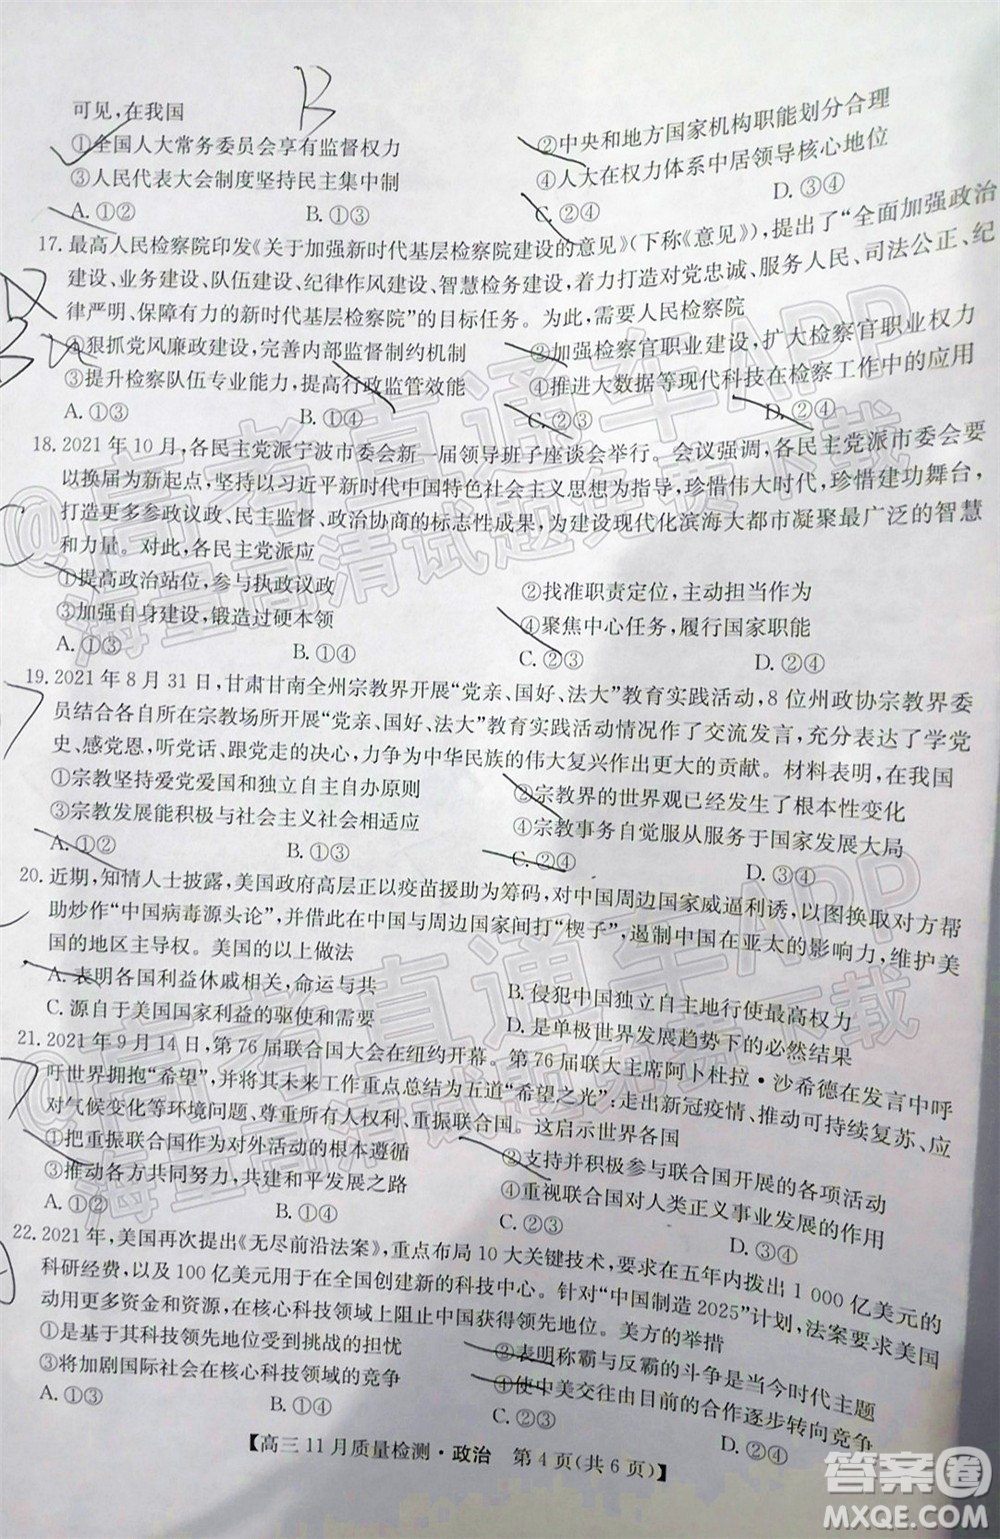 可见,在我国
B
①全国人大常务委员会享有监督权力
②中央和地方国家机构职能划分合理
③人民代表大会制度坚持民主集中制
④人大在权力体系中居领导核心地位
A. ①② B. ①③ C. ②④ D. ③④
17. 最高人民检察院印发《关于加强新时代基层检察院建设的意见》(下称《意见》),提出了“全面加强政治
建设、业务建设、队伍建设、纪律作风建设、智慧检务建设,着力打造对党忠诚、服务人民、司法公正、纪
律严明、保障有力的新时代基层检察院”的目标任务。为此,需要人民检察院
①狠抓党风廉政建设,完善内部监督制约机制
②加强检察官职业建设,扩大检察官职业权力
③提升检察队伍专业能力,提高行政监管效能
④推进大数据等现代科技在检察工作中的应用
A. ①③ B. ①④ C. ②③ D. ②④
18. 2021 年 10 月,各民主党派宁波市委会新一届领导班子座谈会举行。会议强调,各民主党派市委会要
以换届为新起点,坚持以习近平新时代中国特色社会主义思想为指导,珍惜伟大时代,珍惜建功舞台,
打造更多参政议政、民主监督、政治协商的标志性成果,为建设现代化滨海大都市凝聚最广泛的智慧
和力量。对此,各民主党派应
①提高政治站位,参与执政议政
②找准职责定位,主动担当作为
③加强自身建设,锻造过硬本领
④聚焦中心任务,履行国家职能
A. ①③ B. ①④ C. ②③ D. ②④
19. 2021 年 8 月 31 日,甘肃甘南全州宗教界开展“党亲、国好、法大”教育实践活动,8 位州政协宗教界委
员结合各自所在宗教场所开展“党亲、国好、法大”教育实践活动情况作了交流发言,充分表达了学党
史、感党恩,听党话、跟党走的决心,力争为中华民族的伟大复兴作出更大的贡献。材料表明,在我国
①宗教坚持爱党爱国和独立自主自办原则
②宗教界的世界观已经发生了根本性变化
③宗教发展能积极与社会主义社会相适应
④宗教事务自觉服从服务于国家发展大局
A. ①② B. ①③ C. ②④ D. ③④
20. 近期,知情人士披露,美国政府高层正以疫苗援助为筹码,对中国周边国家威逼利诱,以图换取对方帮
助炒作“中国病毒源头论”,并借此在中国与周边国家间打“楔子”,遏制中国在亚太的影响力,维护美
国的地区主导权。美国的以上做法
A. 表明各国利益休戚相关、祸福相依
B. 侵犯中国独立自主地行使最高权
C. 源自于美国国家利益的驱使和需要
D. 是单极世界发展趋势下的必然结果
21. 2021 年 9 月 14 日,第 76 届联合国大会在纽约开幕。第 76 届联大主席阿卜杜拉·沙希德在发言中呼
吁世界拥抱“希望”,并将其未来工作重点总结为五道“希望之光”:走出新冠疫情、推动可持续复苏、应
对气候变化等环境问题、尊重所有人权利、重振联合国。这启示世界各国
①把重振联合国作为对外活动的根本遵循
②支持并积极参与联合国开展的各项活动
③推动各方共同努力、共建和平发展之路
④重视联合国对人类正义事业发展的作用
A. ①② B. ①④ C. ②③ D. ③④
22. 2021 年,美国再次提出《无尽前沿法案》,重点布局 10 大关键技术,要求在五年内新拨出 1 000 亿美元的
科研经费,以及 100 亿美元用于在全国创建新的科技中心。针对“中国制造 2025”计划,法案要求美国
动用更多资金和资源,在核心科技领域上阻止中国获得领先地位。美方的举措
①是基于其科技领先地位受到挑战的担忧
②表明称霸与反霸的斗争是当今时代主题
③将加剧国际社会在核心科技领域的竞争
④使中美交往由目前的合作逐步转向竞争
A. ①③ B. ①④ C. ②③ D. ②④
【高三 11 月质量检测·政治 第 4 页(共 6 页)】
答案圈
MXQE.COM